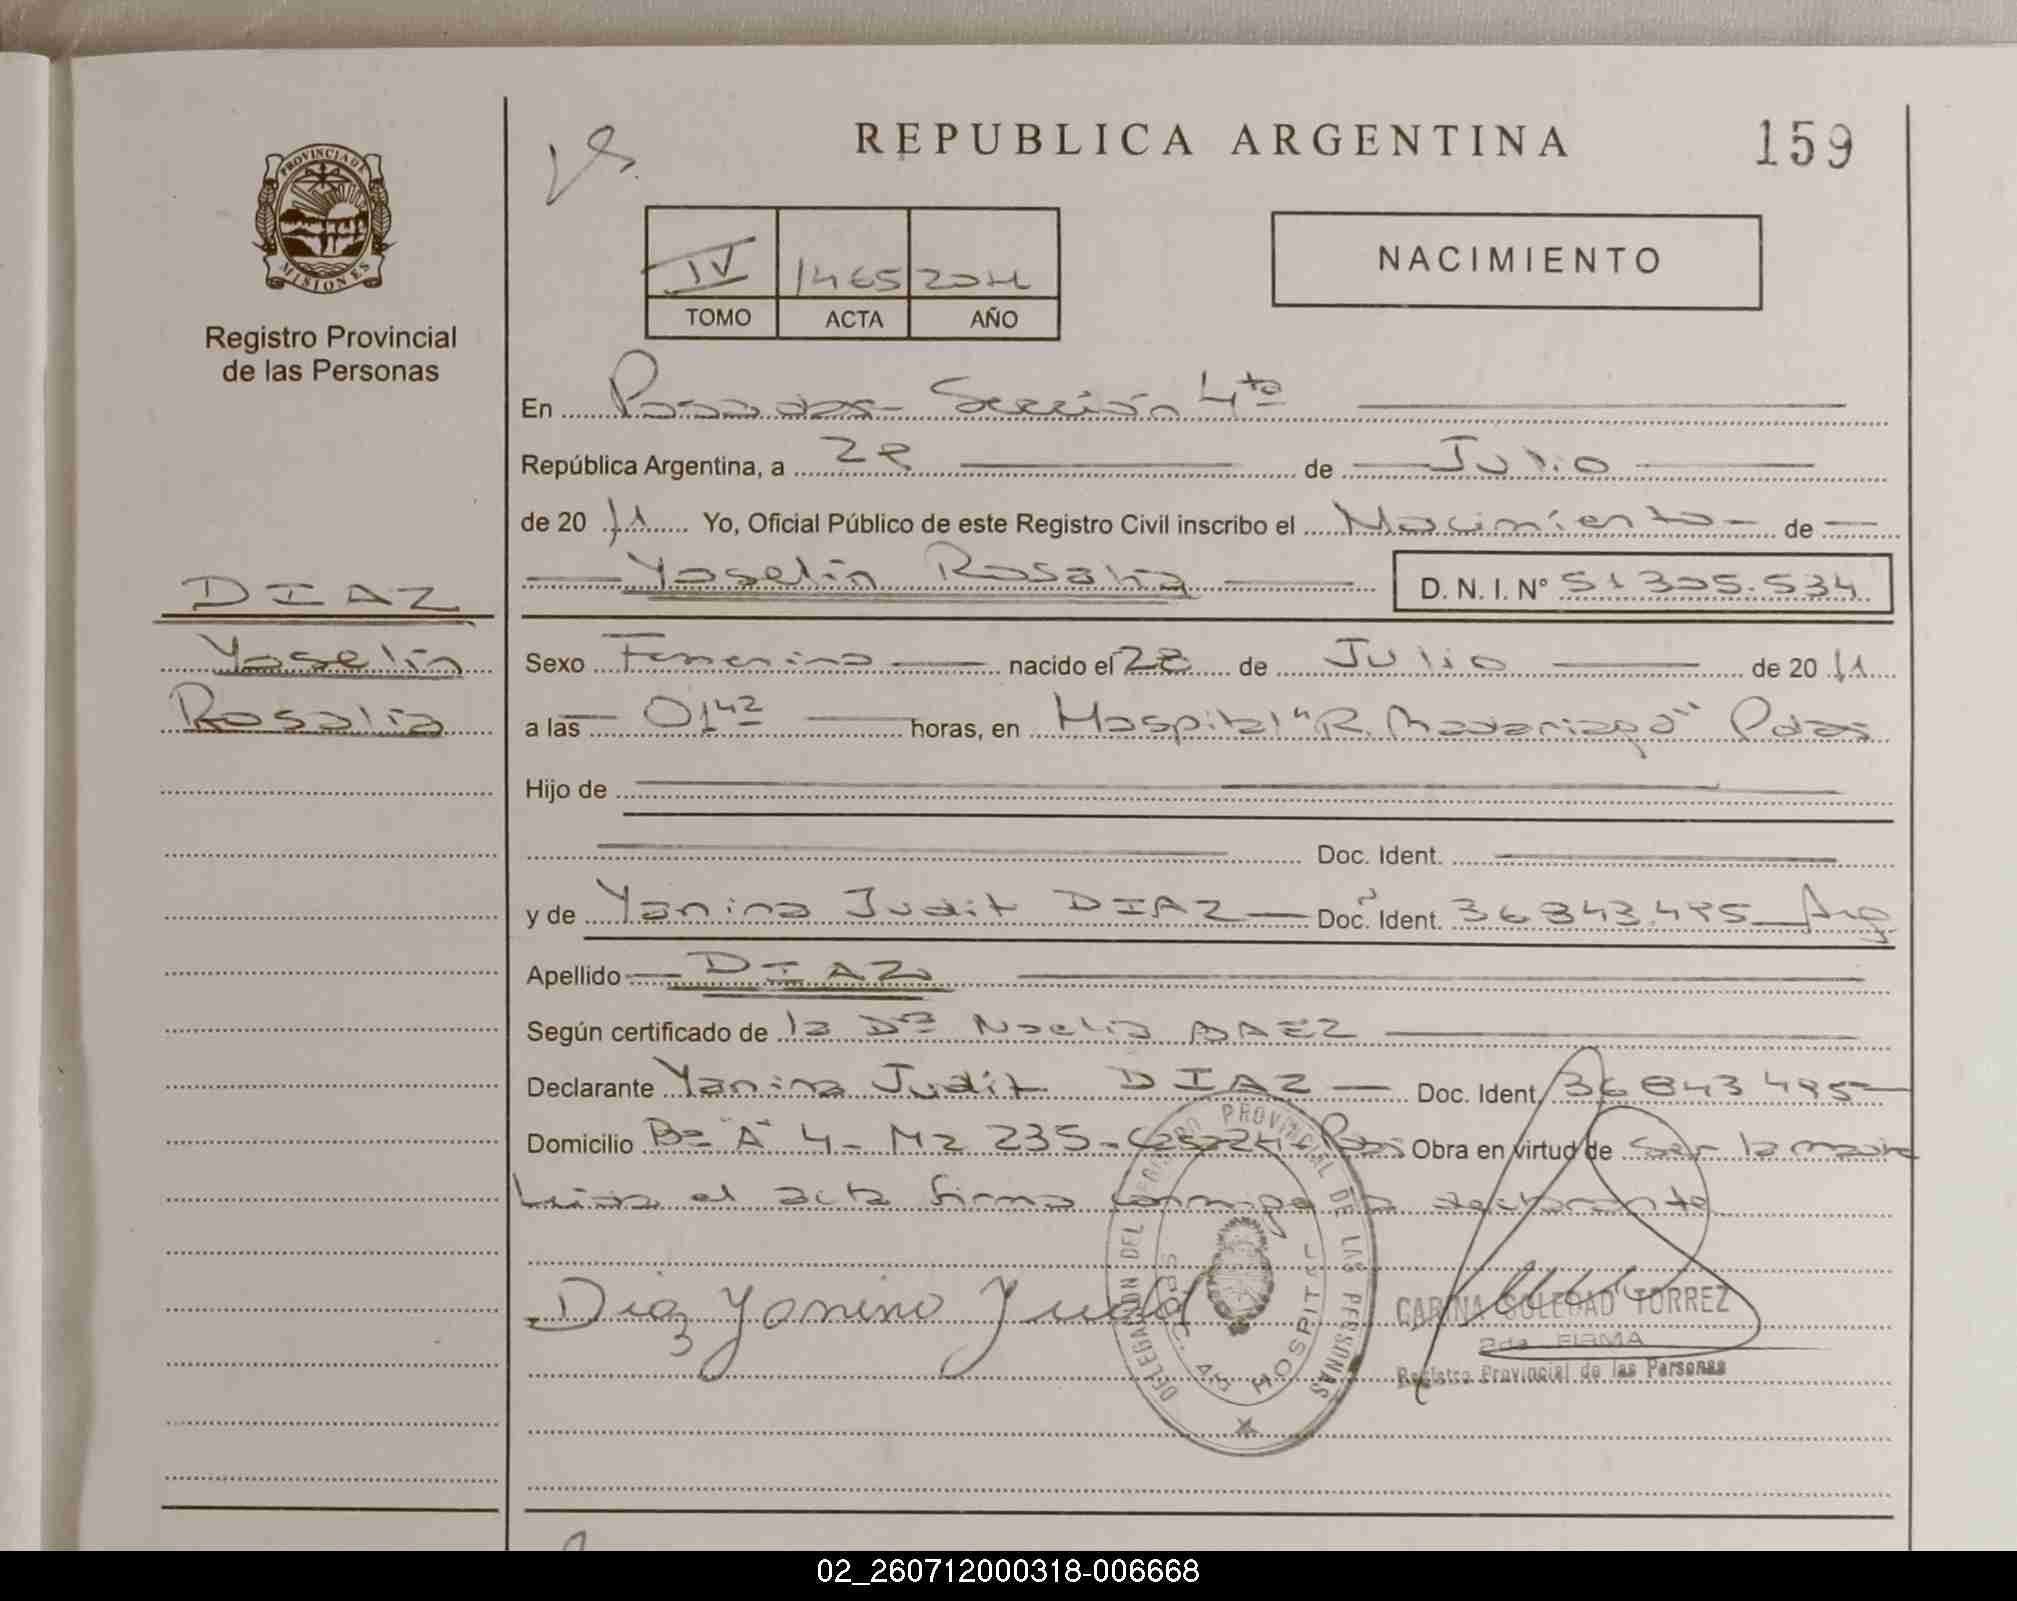 REPUBLICA ARGENTINA
159
PROVINCIA DE
MISIONES
Registro Provincial
de las Personas
IV 1465 2011
TOMO ACTA AÑO
NACIMIENTO
En Posadas Sección 4ta
República Argentina, a 28 de Julio
de 20 11 Yo, Oficial Público de este Registro Civil inscribo el Nacimiento de
Yoselin Rosalia D. N. I. Nº 51 305.534
DIAZ
Yoselin
Rosalia
Sexo Femenino nacido el 28 de Julio de 20 11
a las 01 42 horas, en Hospital "R. Madariaga" Pdas
Hijo de
Doc. Ident.
y de Yanina Judit DIAZ Doc. Ident. 36843.495 Arg
Apellido DIAZ
Según certificado de la Dra Noelia BAEZ
Declarante Yanina Judit DIAZ Doc. Ident. 36843495
Domicilio Bº "A" 4 - Mz 235 - Pdas Obra en virtud de ser la madre
Leida el acta firma conmigo la declarante
Diaz Yanina Judit
DELEGACIÓN DEL REGISTRO PROVINCIAL DE LAS PERSONAS
HOSPITAL
CARINA SOLEDAD TORREZ
2da FIRMA
Registro Provincial de las Personas
02_260712000318-006668